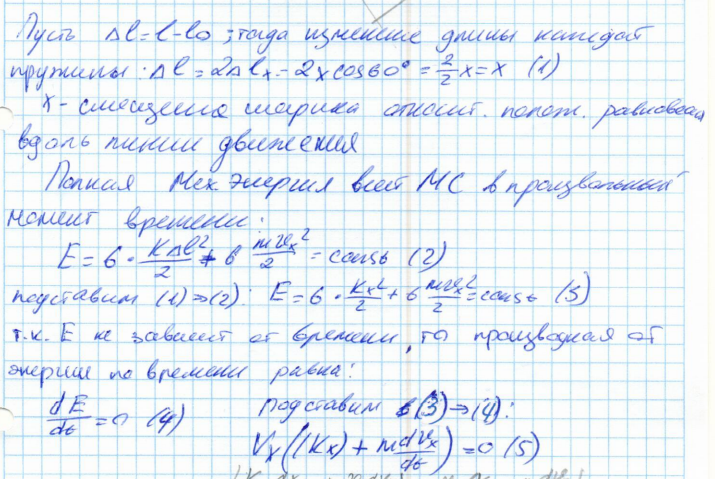 Пусть Δl=l-l₀; тогда изменение длины каждой
пружины: Δl = 2Δlₓ = 2x cos60° = 2/2 x = x (1)
x - смещение шарика относит. полож. равновесия
вдоль линии движения
Полная Мех Энергия всей МС в произвольный
момент времени:
E = 6 · KΔl²/2 + 6 mvₓ²/2 = const (2)
подставим (1)→(2): E = 6 · Kx²/2 + 6 mvₓ²/2 = const (3)
т.к. E не зависит от времени, то производная от
энергии по времени равна:
dE/dt = 0 (4) подставим (3)→(4):
Vₓ((Kx) + m dvₓ/dt) = 0 (5)